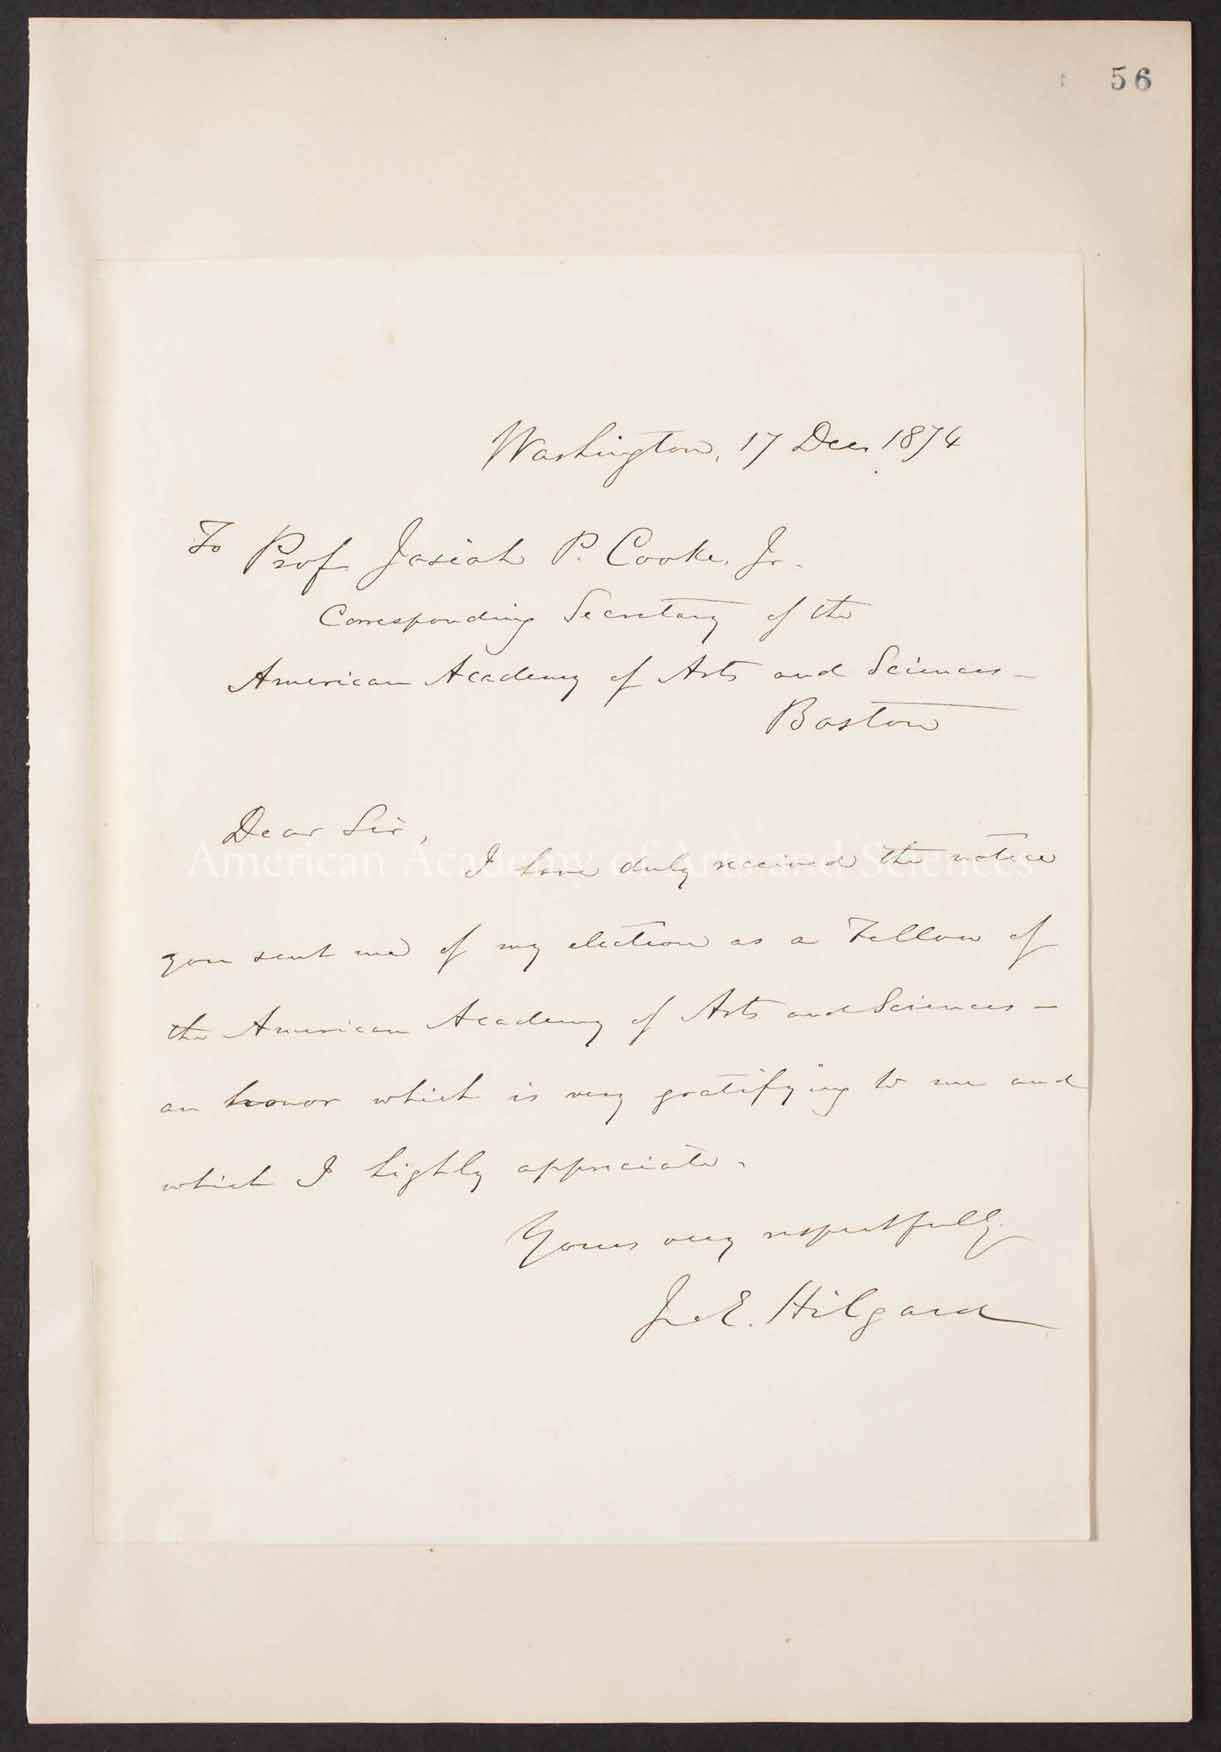 56
Washington, 17 Dec. 1874
To Prof. Josiah P. Cooke, Jr.
Corresponding Secretary of the
American Academy of Arts and Sciences —
Boston
Dear Sir,
American Academy of Arts and Sciences
I have duly received the notice
you sent me of my election as a Fellow of
the American Academy of Arts and Sciences —
an honor which is very gratifying to me and
which I highly appreciate.
Yours very respectfully.
J. E. Hilgard